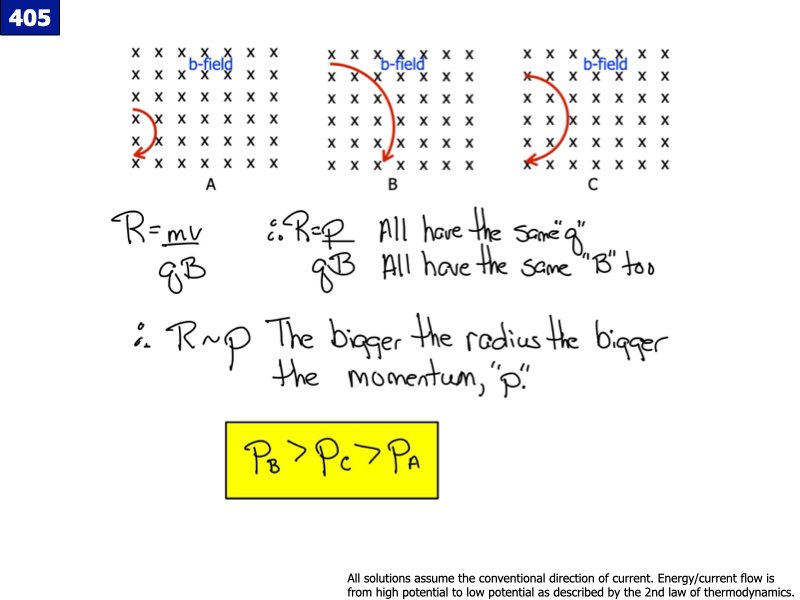 405
x x x x x x x
b-field
x x x x x x x
x x x x x x x
x x x x x x x
x x x x x x x
x x x x x x x
A
x x x x x x x
b-field
x x x x x x x
x x x x x x x
x x x x x x x
x x x x x x x
x x x x x x x
B
x x x x x x x
b-field
x x x x x x x
x x x x x x x
x x x x x x x
x x x x x x x
x x x x x x x
C
R = mv / qB ∴ R = p / qB All have the same "q"
All have the same "B" too
∴ R ~ p The bigger the radius the bigger
the momentum, "p."
P_B > P_C > P_A
All solutions assume the conventional direction of current. Energy/current flow is
from high potential to low potential as described by the 2nd law of thermodynamics.